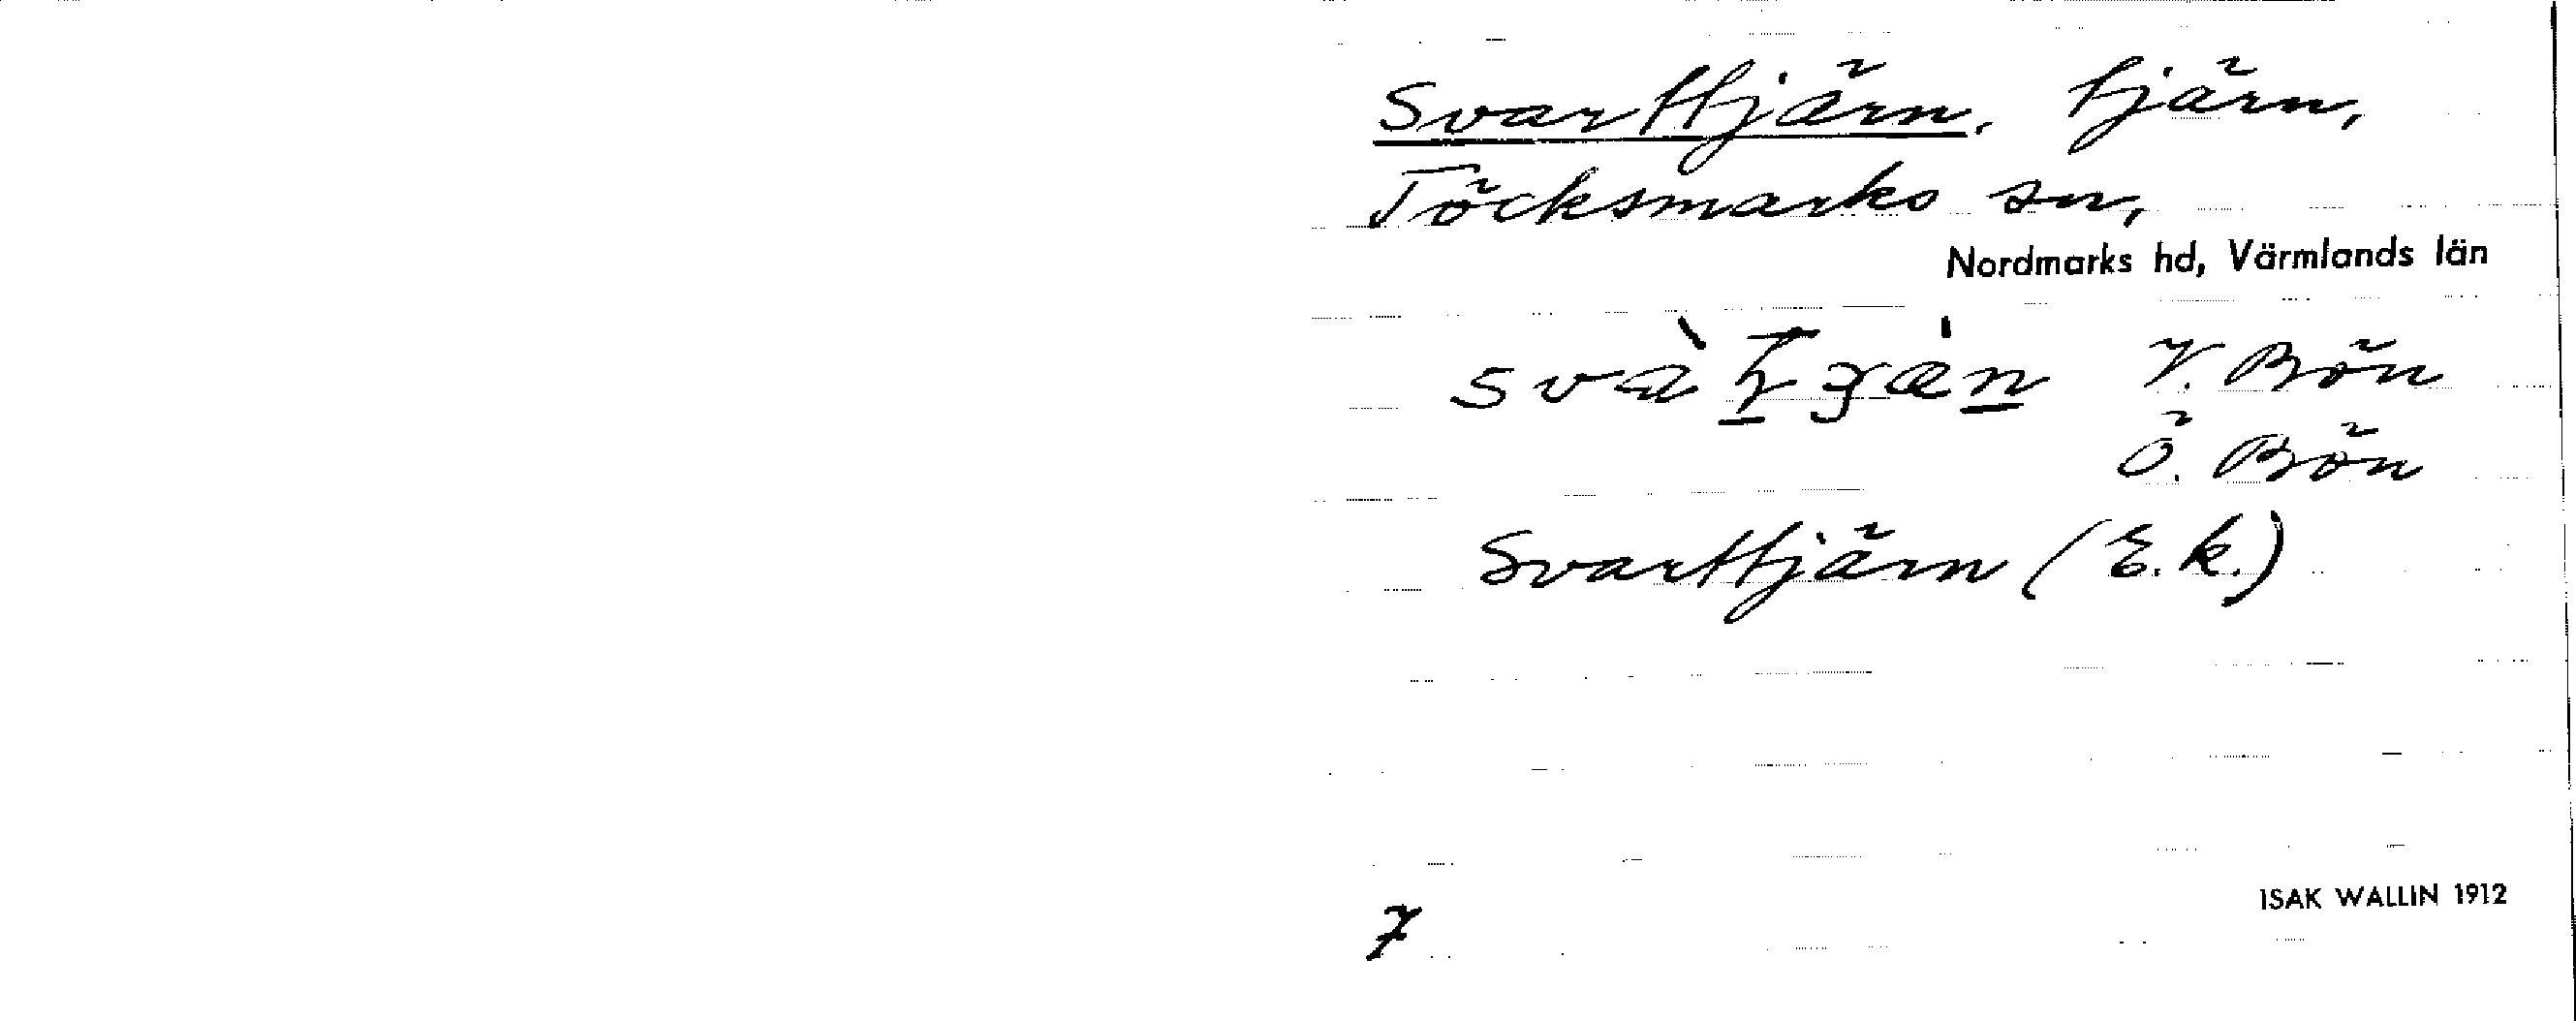 Svarttjärn, tjärn,
Töcksmarks sn,
Nordmarks hd, Värmlands län
V. Bön
Ö. Bön
Svarttjärn (E.k.)
7
ISAK WALLIN 1912